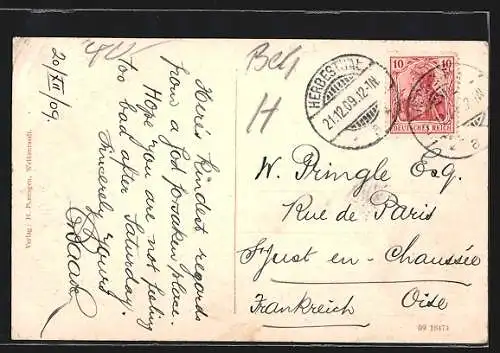 20/XII/09.
Kindest regards
from a god forsaken place.
Hope you are not feeling
too bad after Saturday.
Sincerely Yours
Belg
H
HERBESTHAL
21.12.09.12-1N
10 10
DEUTSCHES REICH
W. Pringle Esq.
Rue de Paris
St Just en-Chaussée
Frankreich Oise
09 16474